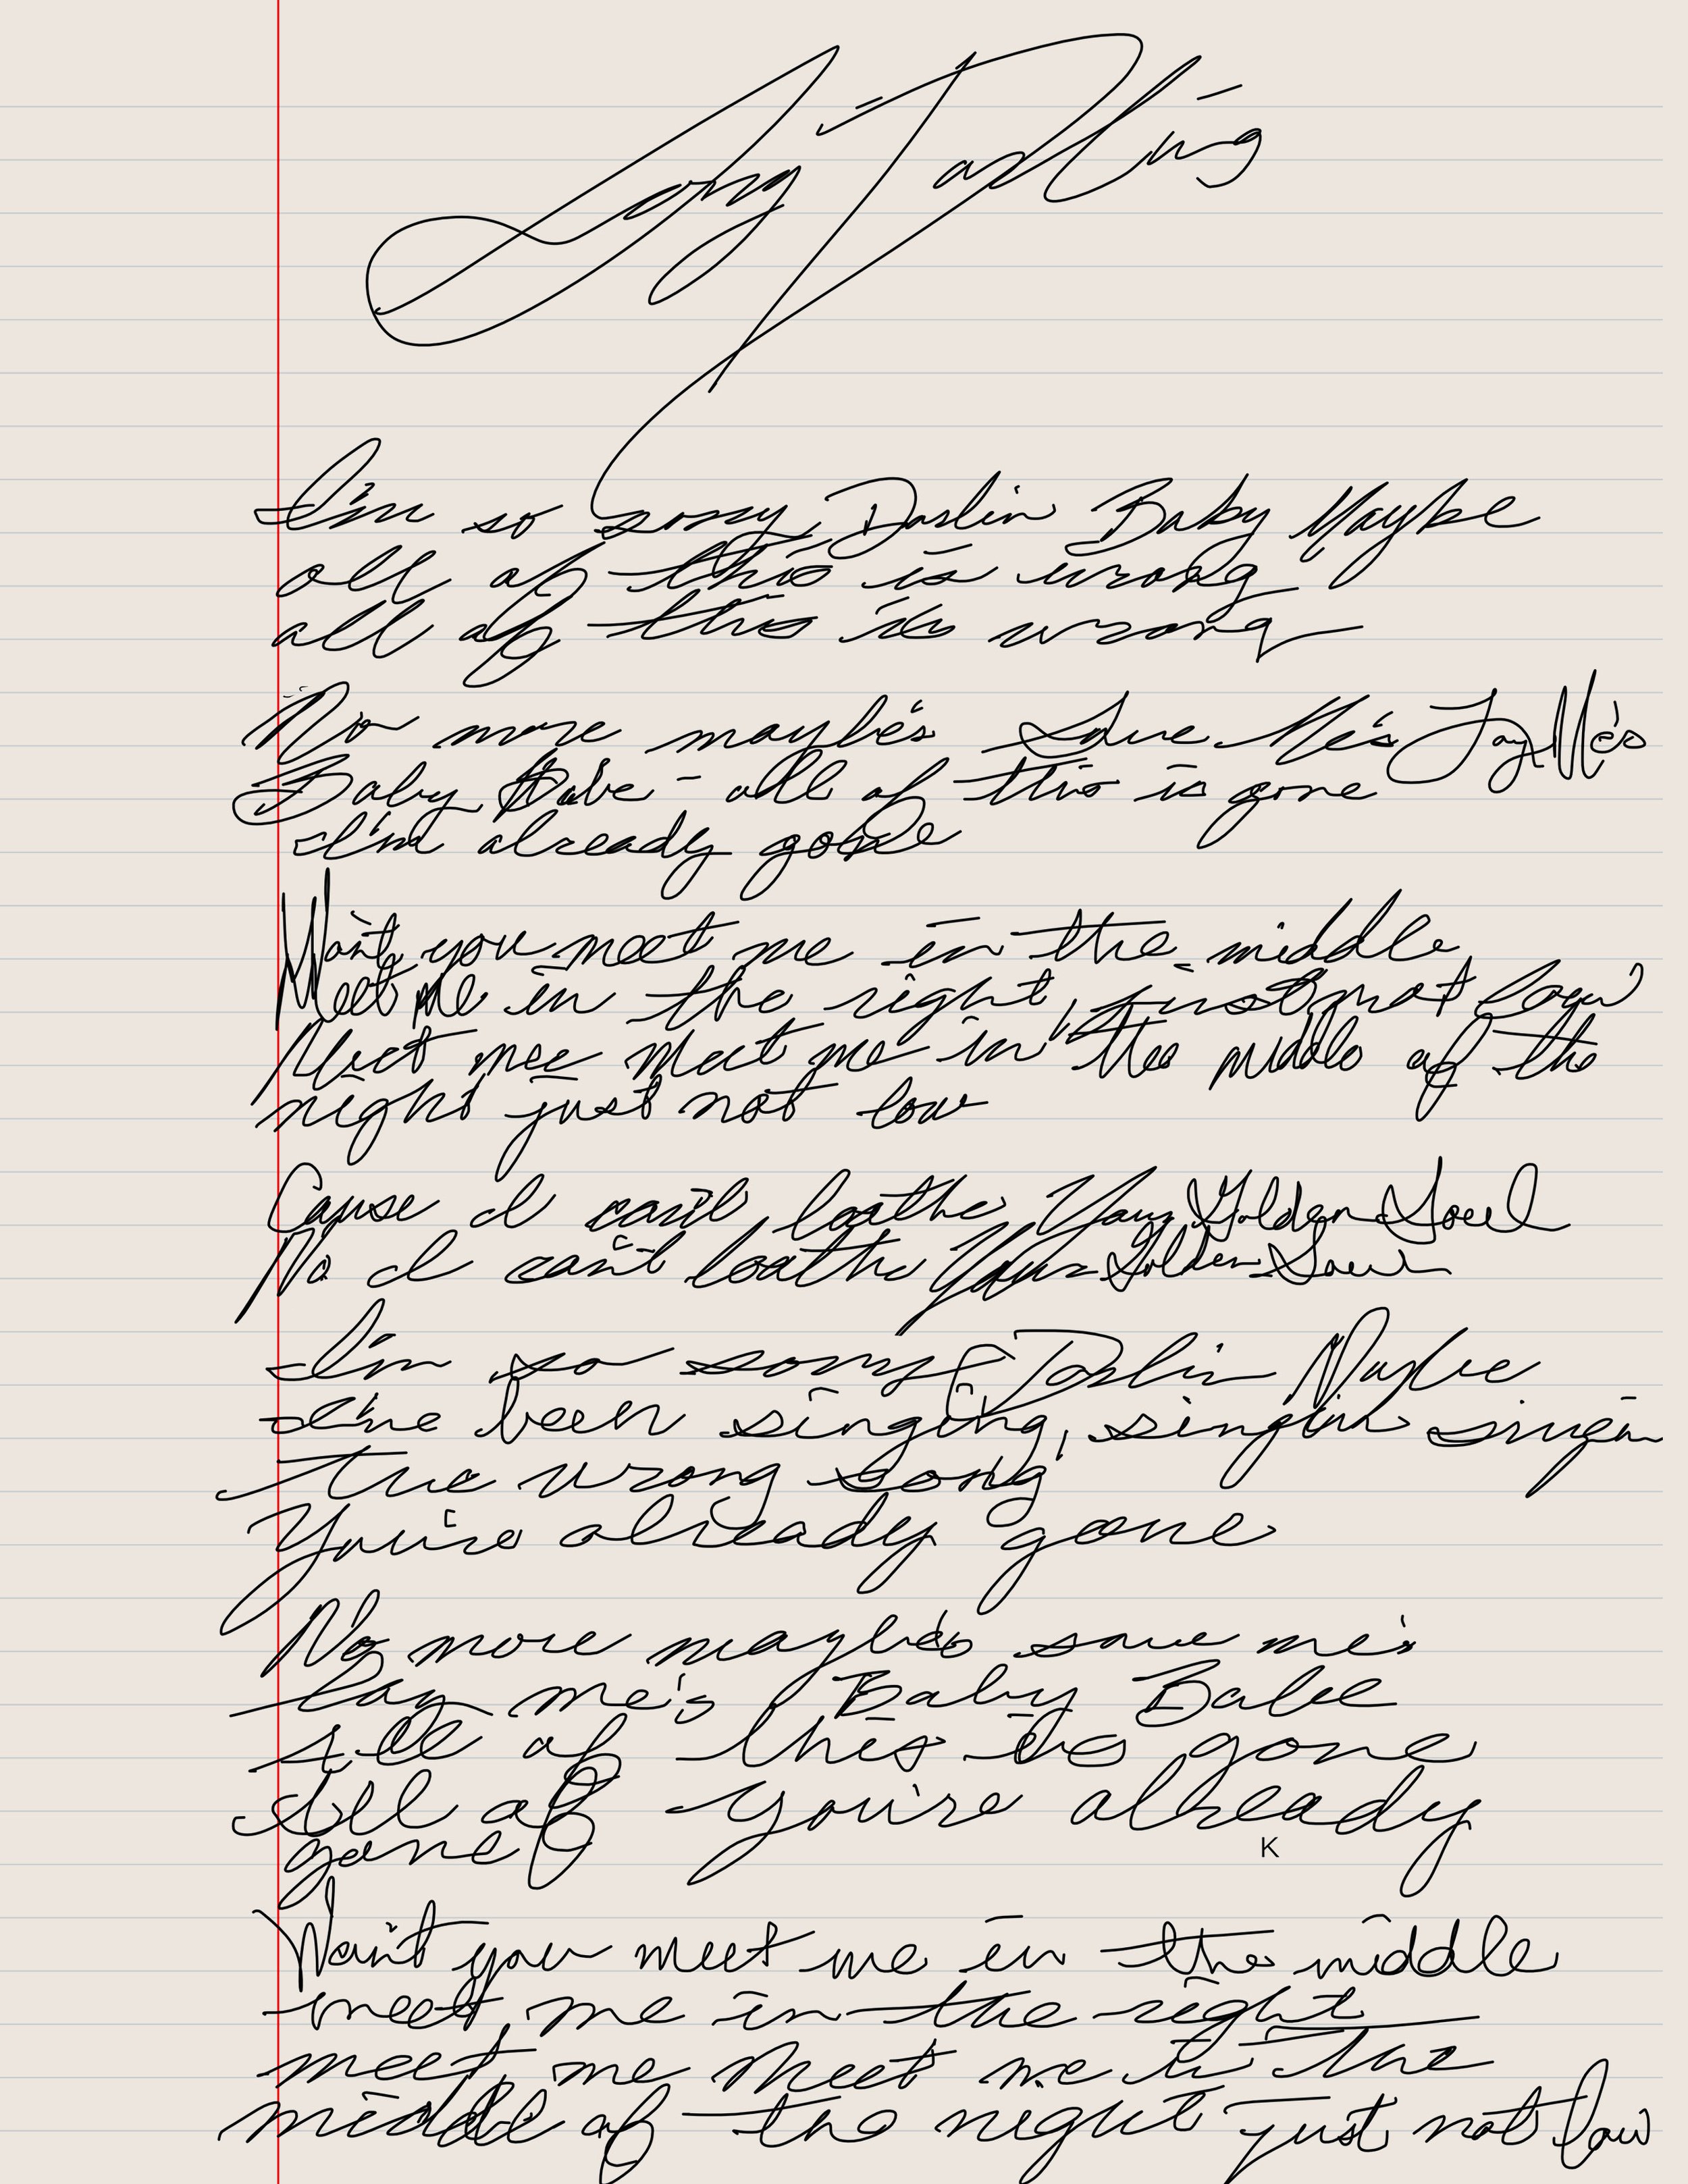 Long Darling
I'm so sorry, Darlin Baby Maybe
all of this is wrong
all of this is wrong
No more maybe's Love Me's Lay Me's
Baby Babe - all of this is gone
I'm already gone
Won't you meet me in the middle
Meet Me in the right, just not low
Meet me Meet me in the middle of the
night just not low
Cause I can't loathe Your Golden Soul
No I can't loathe Your Golden Soul
I'm so sorry Darlin Maybe
I've been singing, singin singin
the wrong song
You're already gone
No more maybe's save me's
lay me's Baby Babe
all of this is gone
all of you're already
gone
K
Won't you meet me in the middle
meet me in the right
meet me Meet me in the
middle of the night just not low